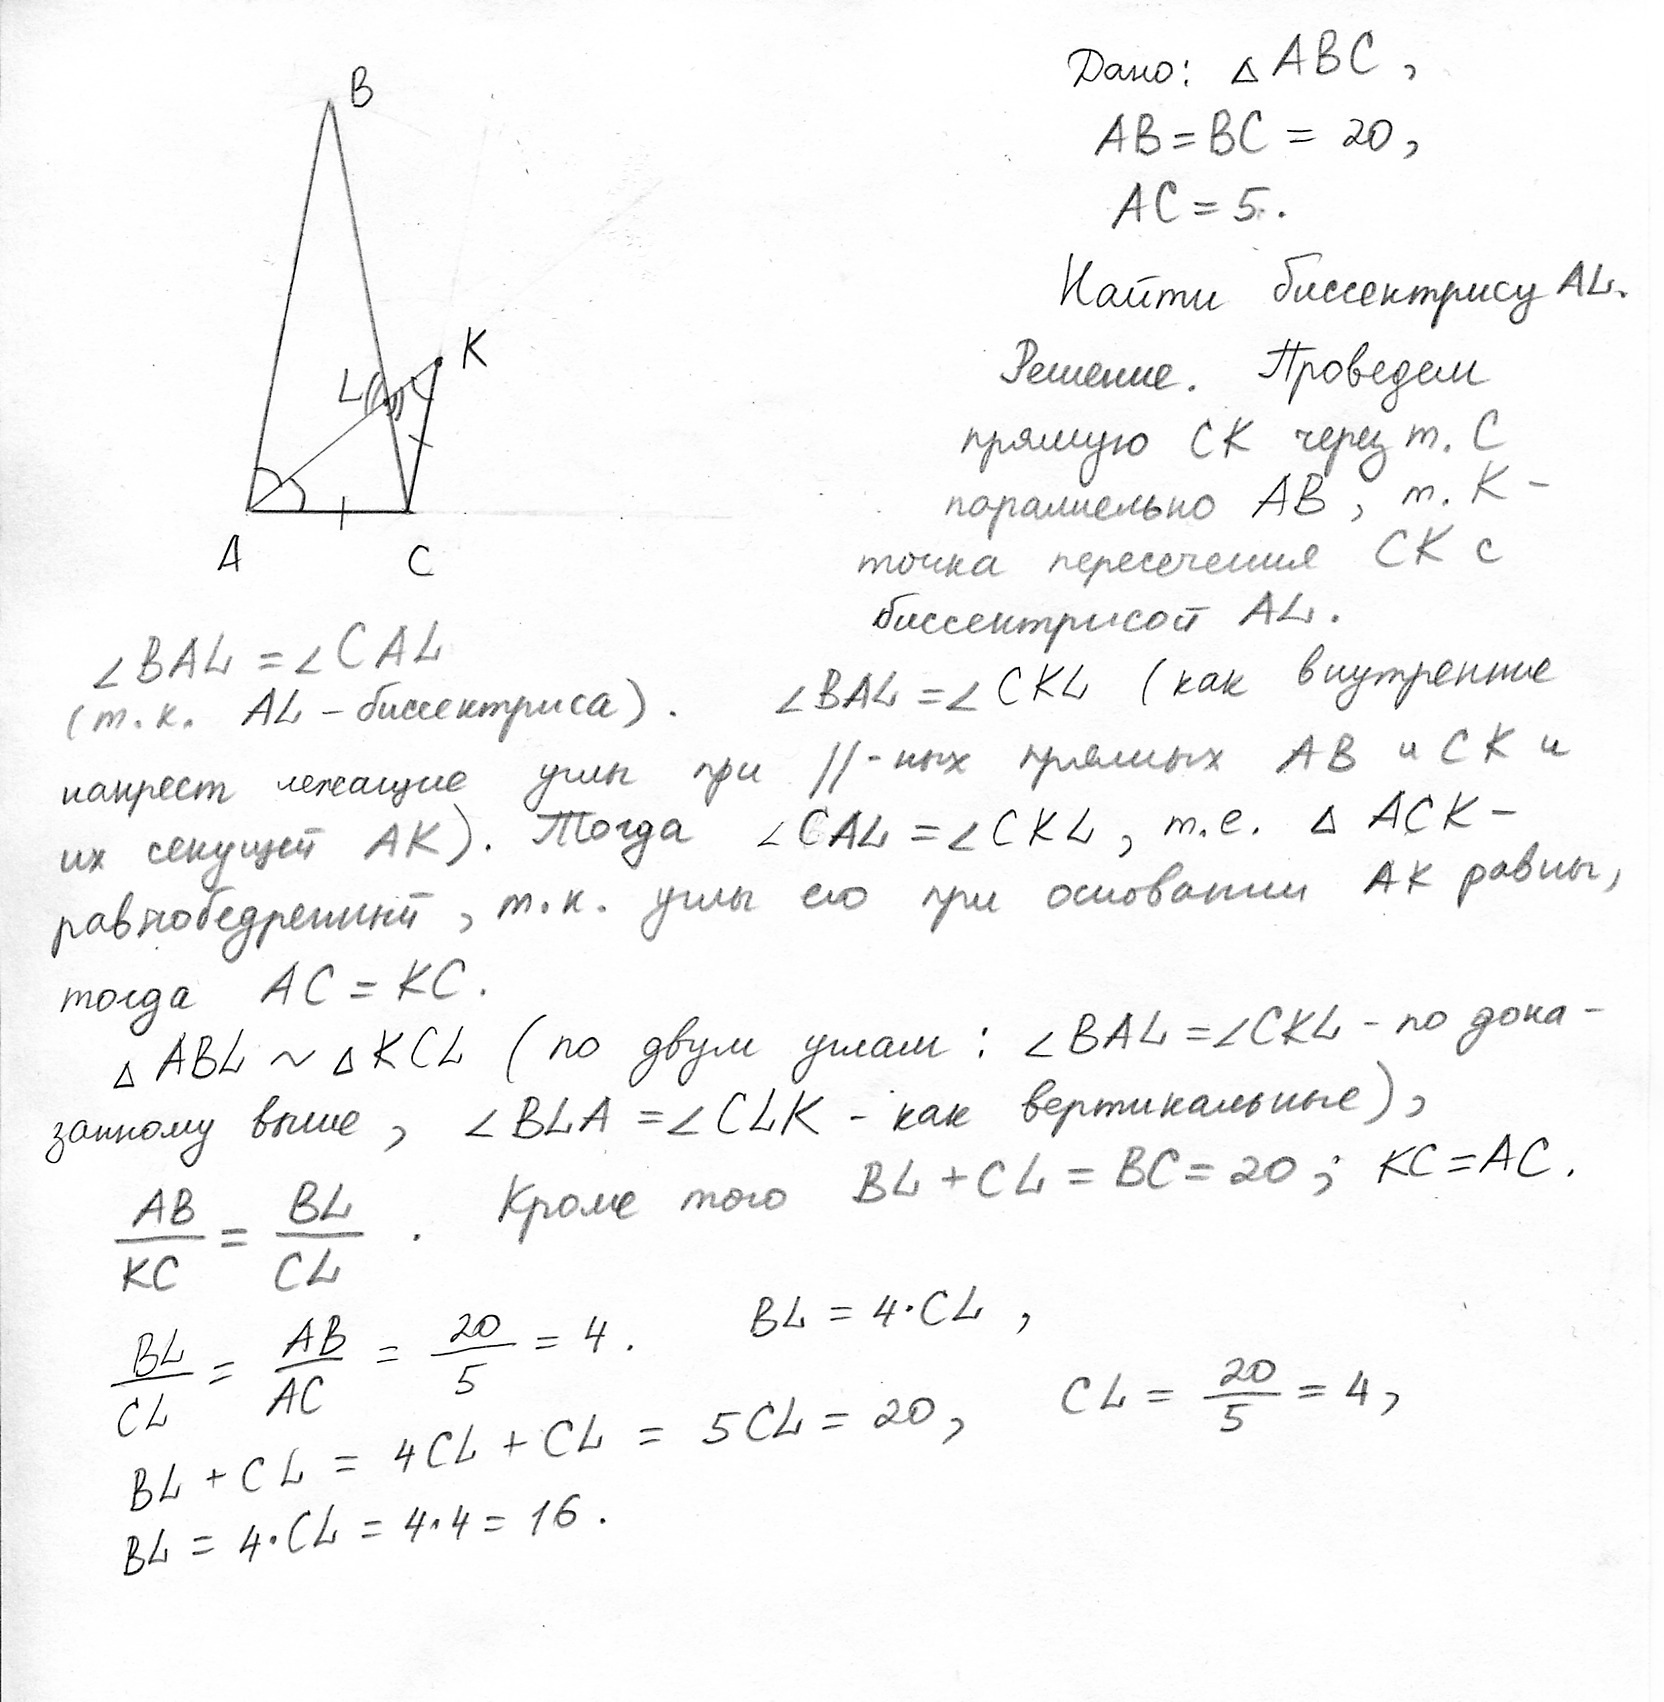 B
K
L
A
C
Дано: △ABC,
AB = BC = 20,
AC = 5.
Найти биссектрису AL.
Решение. Проведем
прямую CK через т. C
параллельно AB, т. K -
точка пересечения CK с
биссектрисой AL.
∠BAL = ∠CAL
(т.к. AL - биссектриса). ∠BAL = ∠CKL (как внутренние
накрест лежащие углы при ||-ных прямых AB и CK и
их секущей AK). Тогда ∠CAL = ∠CKL, т.е. △ ACK -
равнобедренный, т.к. углы его при основании AK равны,
тогда AC = KC.
△ABL ~ △KCL (по двум углам: ∠BAL = ∠CKL - по дока-
занному выше, ∠BLA = ∠CLK - как вертикальные),
AB/KC = BL/CL. Кроме того BL + CL = BC = 20; KC = AC.
BL/CL = AB/AC = 20/5 = 4. BL = 4·CL,
BL + CL = 4CL + CL = 5CL = 20, CL = 20/5 = 4,
BL = 4·CL = 4·4 = 16.